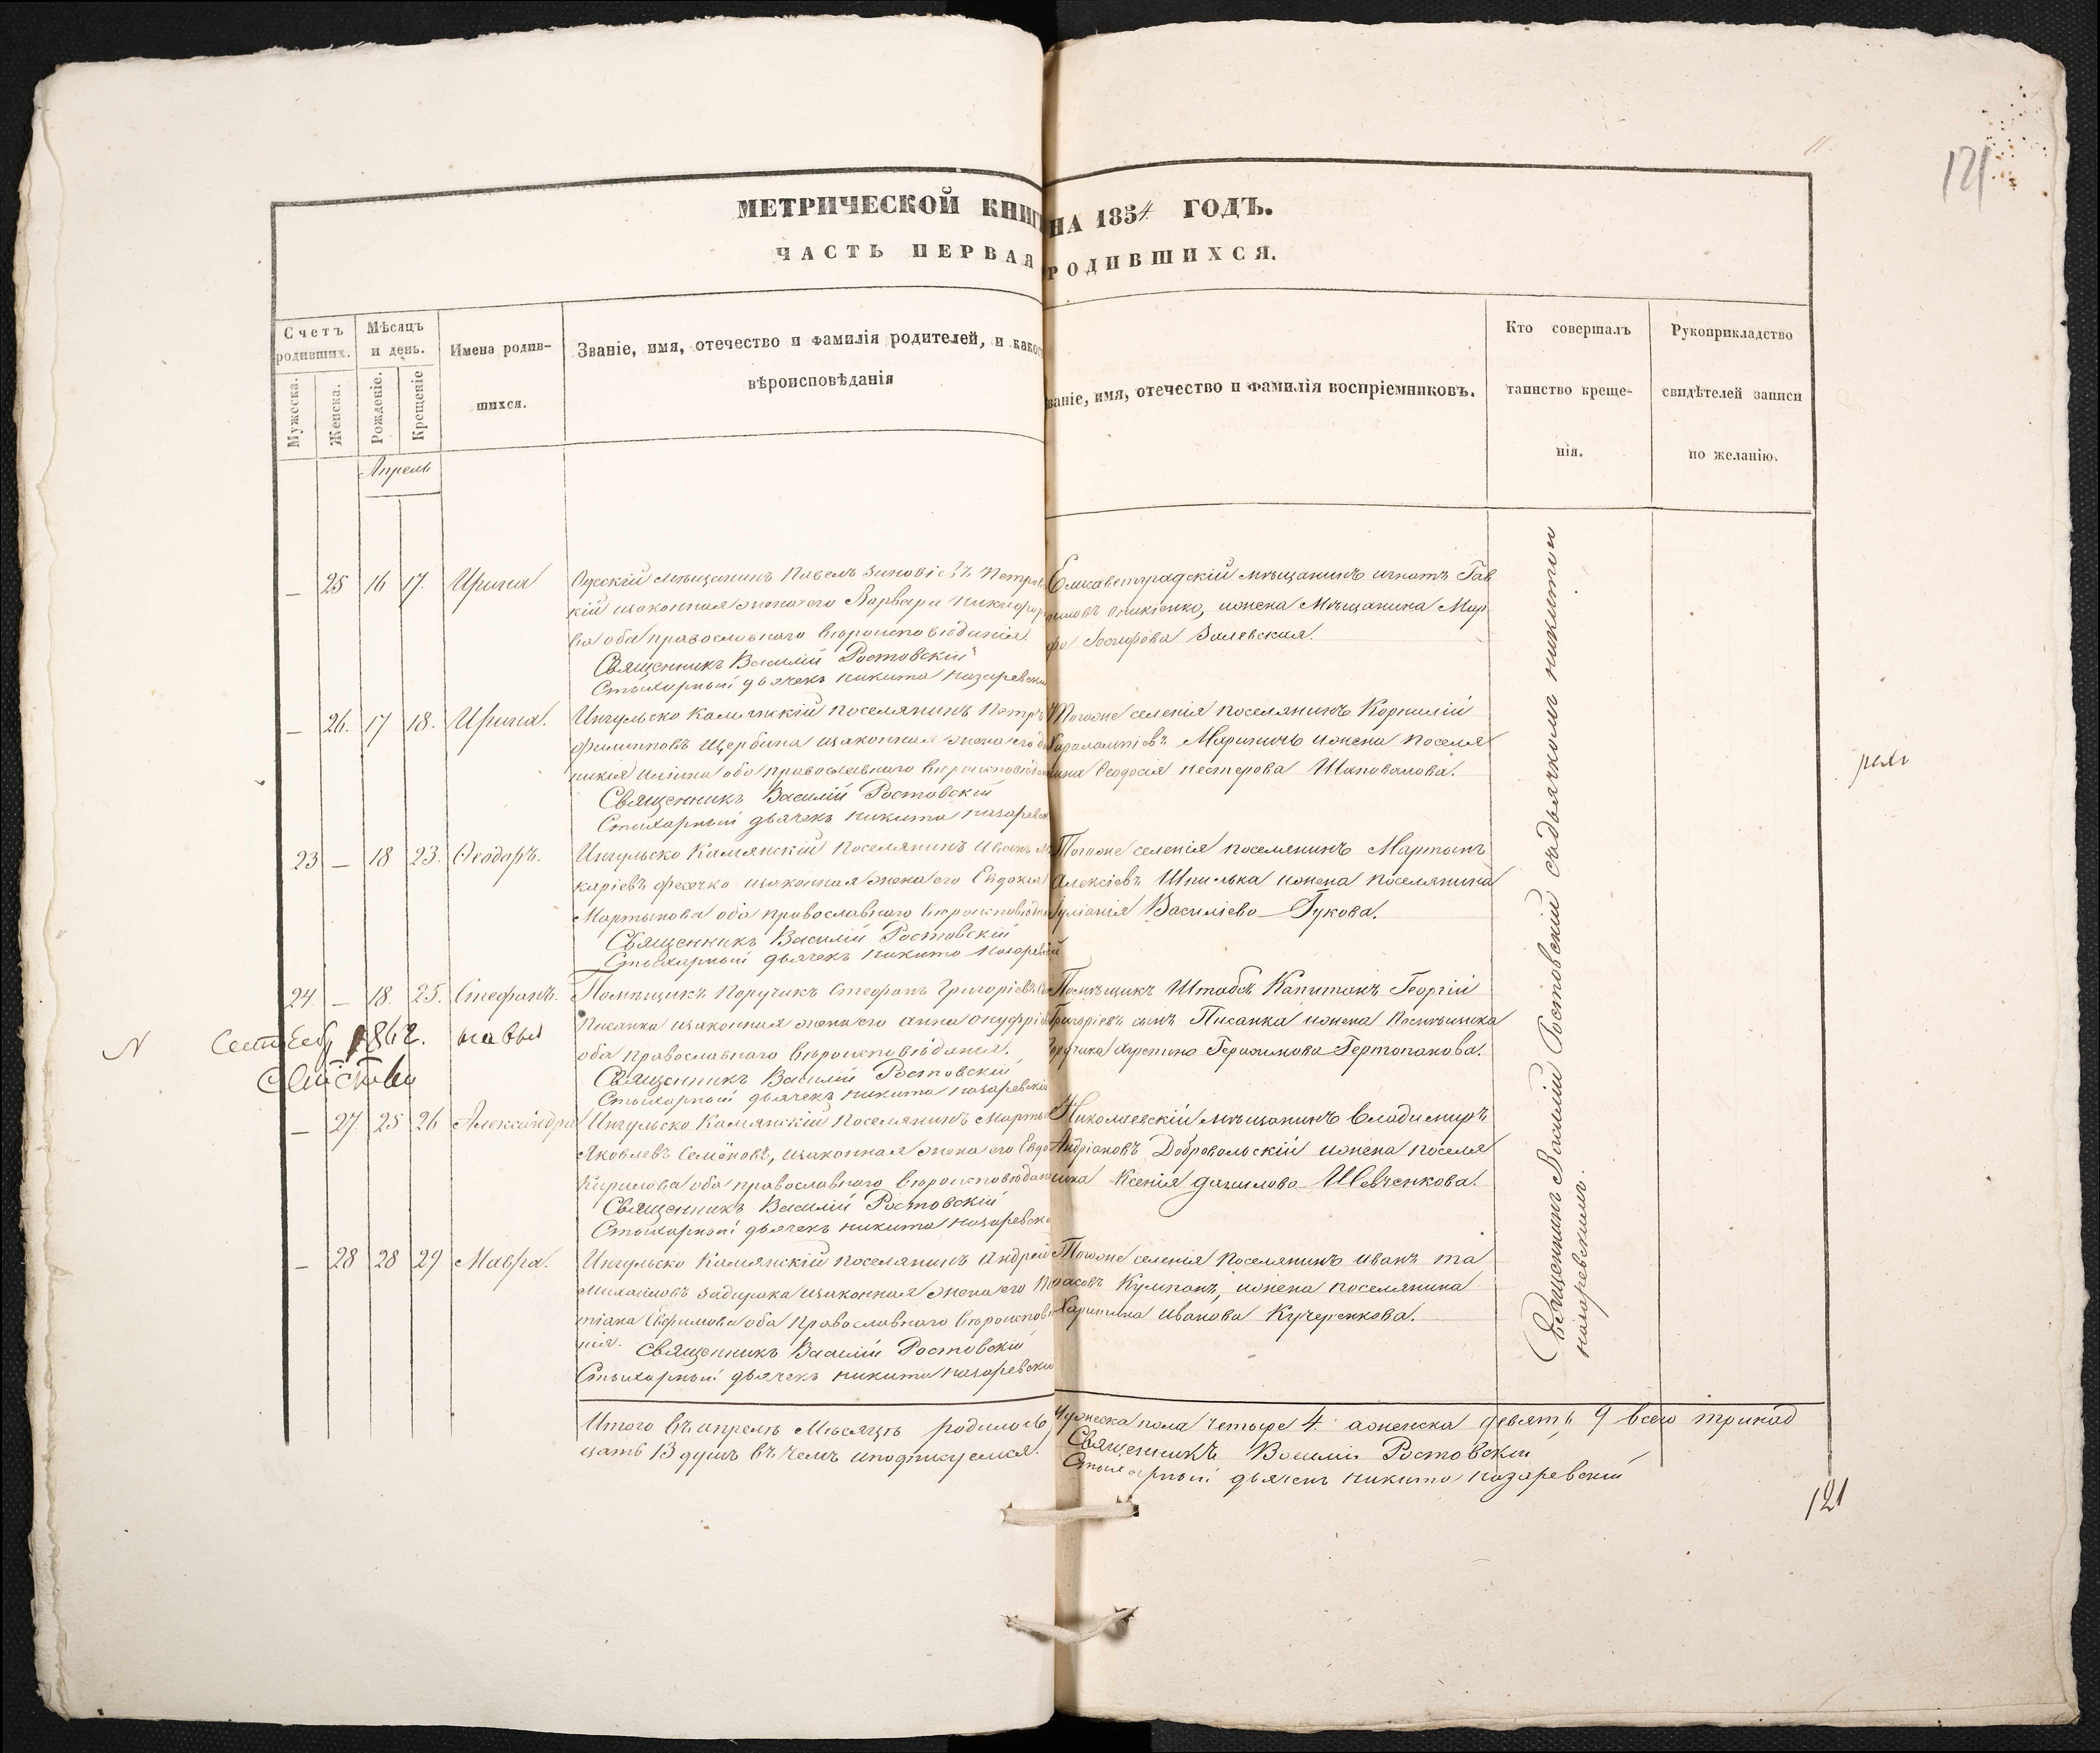 121
МЕТРИЧЕСКОЙ КНИГ НА 1854 ГОДЪ.
ЧАСТЬ ПЕРВАЯ РОДИВШИХСЯ.
Счетъ родивших.
Мужеска.
Женска.
Мѣсяцъ и день.
Рожденіе.
Крещеніе
Имена родив-
шихся.
Званіе, имя, отечество и фамилія родителей, и какого
вѣроисповѣданія
Званіе, имя, отечество и фамилія воспріемниковъ.
Кто совершалъ
таинство креще-
нія.
Рукоприкладство
свидѣтелей записи
по желанію.
Апрель
— 25 16 17. Ирина
Одескій мѣщанинъ Павелъ Зиновіевъ Петров
кій изаконная жена его Варвара Никифоро
ва оба православнаго вѣроисповѣданія.
Священникъ Василій Ростовскій
Стихарный дьячекъ Никита Назаревскій
Елисаветградскій мѣщанинъ Игнатъ Гав
риловъ Оникіенко, ижена Мѣщанина Мар
фа Іосифова Залевская.
— 26. 17 18. Ирина.
Ингульско Камянскій поселянинъ Петръ
Филипповъ Щербина изаконная жена его
оба православнаго вѣроисповѣдан
Священникъ Василій Ростовскій
Стихарный дьячекъ Никита Назаревск
Тогоже селенія поселянинъ Корнилій
Харалампіевъ Мариничь ижена поселя
нина Ѳеодосія Нестерова Шаповалова.
23 — 18 23. Ѳеодоръ.
Ингульско Камянскій поселянинъ Иванъ Ма
каріевъ изаконная жена его Евдокія
Мартынова оба православнаго вѣроисповѣдан
Священникъ Василій Ростовскій
Стихарный дьячекъ Никита Назаревскій
Тогоже селенія поселянинъ Мартынъ
Алексіевъ Шпилька ижена поселянина
Іуліанія Василіева Гукова.
24 — 18. 25. Стефанъ.
Помѣщикъ Поручикъ Стефанъ Григоріевъ
Писанка изаконная жена его Анна Онуфріева
оба православнаго вѣроисповѣданія.
Священникъ Василій Ростовскій
Стихарный дьячекъ Никита Назаревскій
Помѣщикъ Штабсъ Капитанъ Георгій
Григоріевъ сынъ Писанка ижена Помѣщика
Поручика Герасимова Гертопанова.
1862.
— 27 25 26 Александра
Ингульско Камянскій Поселянинъ Мартынъ
Яковлевъ Семёновъ, изаконная жена его Евдо
Кирилова оба православнаго вѣроисповѣдан
Священникъ Василій Ростовскій
Стихарный дьячекъ Никита Назаревскі
Николаевскій мѣщанинъ Владимиръ
Андріановъ Добровольскій ижена поселя
нина Ксенія Данилова Шевченкова.
— 28 28 29 Мавра.
Ингульско Камянскій поселянинъ Андрей
Михайловъ Задирака изаконная жена его Та
тіана Ефимова оба православнаго вѣроисповѣда
нія. Священникъ Василій Ростовскій
Стихарный дьячекъ Никита Назаревскій
Тогоже селенія поселянинъ Иванъ Та
расовъ Кулпанъ, ижена поселянина
Харитина Иванова Кучеренкова.
Священникъ Василій Ростовскій съдьячкомъ Никитою
Назаревскимъ.
Итого въ апрелѣ Мѣсяцѣ родилось Мужеска пола четыре 4. аженска девять 9 всего тринад
цать 13 душъ въ чемъ иподписуемся.
Священникъ Василій Ростовскій
Стихарный дьячекъ Никита Назаревскій
121